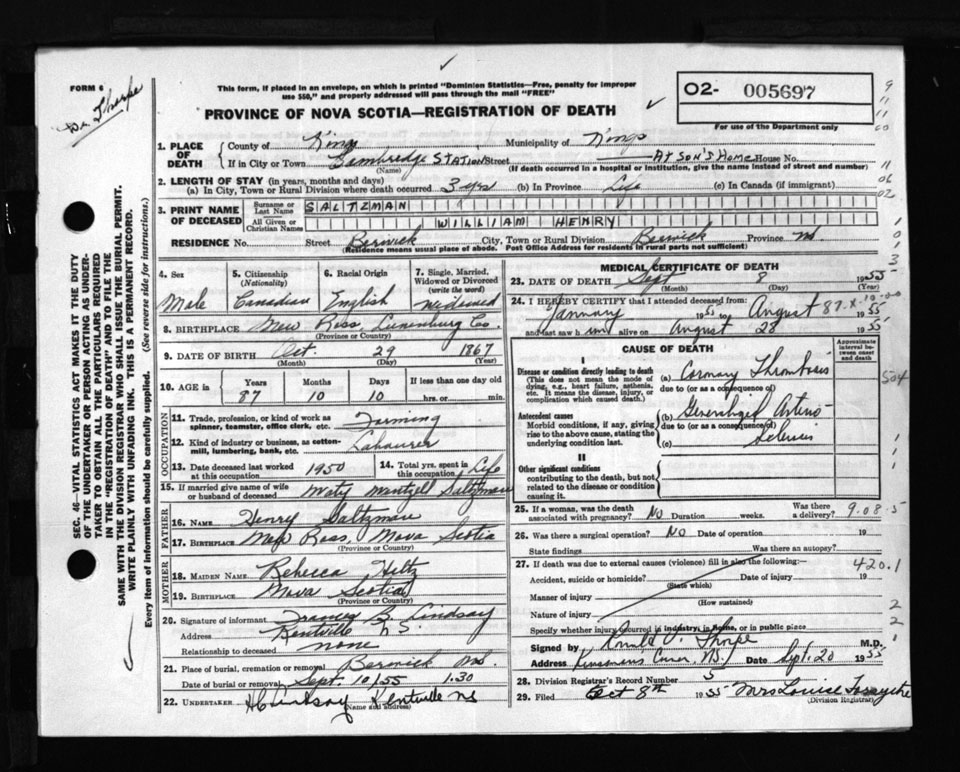 FORM 6
Dr. Thorpe
This form, if placed in an envelope, on which is printed "Dominion Statistics—Free, penalty for improper
use $50," and properly addressed will pass through the mail "FREE"
PROVINCE OF NOVA SCOTIA—REGISTRATION OF DEATH
O2- 005697
For use of the Department only
SEC. 46—VITAL STATISTICS ACT MAKES IT THE DUTY
OF THE UNDERTAKER OR PERSON ACTING AS UNDER-
TAKER TO OBTAIN ALL THE PARTICULARS REQUIRED
IN THE "REGISTRATION OF DEATH" AND TO FILE THE
SAME WITH THE DIVISION REGISTRAR WHO SHALL ISSUE THE BURIAL PERMIT.
WRITE PLAINLY WITH UNFADING INK. THIS IS A PERMANENT RECORD.
Every item of information should be carefully supplied. (See reverse side for instructions.)
1. PLACE OF DEATH
County of Kings Municipality of Kings
If in City or Town Cambridge STATION Street AT SON'S HOME House No.
(Name) (If death occurred in a hospital or institution, give the name instead of street and number)
2. LENGTH OF STAY (in years, months and days)
(a) In City, Town or Rural Division where death occurred 3 yrs (b) In Province Life (c) In Canada (if immigrant)
3. PRINT NAME OF DECEASED
Surname or Last Name SALTZMAN
All Given or Christian Names WILLIAM HENRY
RESIDENCE No. Street Berwick City, Town or Rural Division Berwick Province NS
(Residence means usual place of abode. Post Office Address for residents in rural parts not sufficient)
4. Sex 5. Citizenship (Nationality) 6. Racial Origin 7. Single, Married, Widowed or Divorced (write the word)
Male Canadian English Widowed
8. BIRTHPLACE New Ross, Lunenburg Co.
9. DATE OF BIRTH Oct. 29 1867
(Month) (Day) (Year)
10. AGE in Years Months Days If less than one day old
87 10 10 hrs. or min.
OCCUPATION
11. Trade, profession, or kind of work as spinner, teamster, office clerk, etc. Farming
12. Kind of industry or business, as cotton-mill, lumbering, bank, etc. Labourer
13. Date deceased last worked at this occupation 1950 14. Total yrs. spent in this occupation Life
15. If married give name of wife or husband of deceased Mary Wentzell Saltzman
FATHER
16. NAME Henry Saltzman
17. BIRTHPLACE New Ross, Nova Scotia
(Province or Country)
MOTHER
18. MAIDEN NAME Rebecca Hiltz
19. BIRTHPLACE Nova Scotia
(Province or Country)
20. Signature of informant B. Lindsay
Address Kentville N S.
Relationship to deceased none
21. Place of burial, cremation or removal Berwick NS.
Date of burial or removal Sept. 10/55 1.30
22. UNDERTAKER H C Lindsay Kentville NS
(Name and address)
MEDICAL CERTIFICATE OF DEATH
23. DATE OF DEATH Sept 8 1955
(Month) (Day) (Year)
24. I HEREBY CERTIFY that I attended deceased from
January 1955 to August 1955
and last saw him alive on August 28 1955
87-x-10-00
CAUSE OF DEATH
Approximate interval between onset and death
I
Disease or condition directly leading to death
(This does not mean the mode of dying, e.g., heart failure, asthenia, etc. It means the disease, injury, or complication which caused death.)
(a) Coronary Thrombosis
due to (or as a consequence of)
Antecedent causes
Morbid conditions, if any, giving rise to the above cause, stating the underlying condition last.
(b) Generalized Arterio
due to (or as a consequence of)
(c) Sclerosis
II
Other significant conditions
contributing to the death, but not related to the disease or condition causing it.
25. If a woman, was the death associated with pregnancy? No Duration weeks. Was there a delivery? 9.08.5
26. Was there a surgical operation? NO Date of operation 19
State findings Was there an autopsy?
27. If death was due to external causes (violence) fill in also the following:— 420.1
Accident, suicide or homicide? Date of injury 19
(State which)
Manner of injury
(How sustained)
Nature of injury
Specify whether injury occurred in industry, in home, or in public place
Signed by Ronald Thorpe M.D.
Address NS. Date Sept. 20 1955
28. Division Registrar's Record Number 5
29. Filed Oct 8th 1955 Mrs Louise Forsythe
(Division Registrar)
9
11
11
00
11
06
02
1
0
1
3
504
1
1
2
2
1